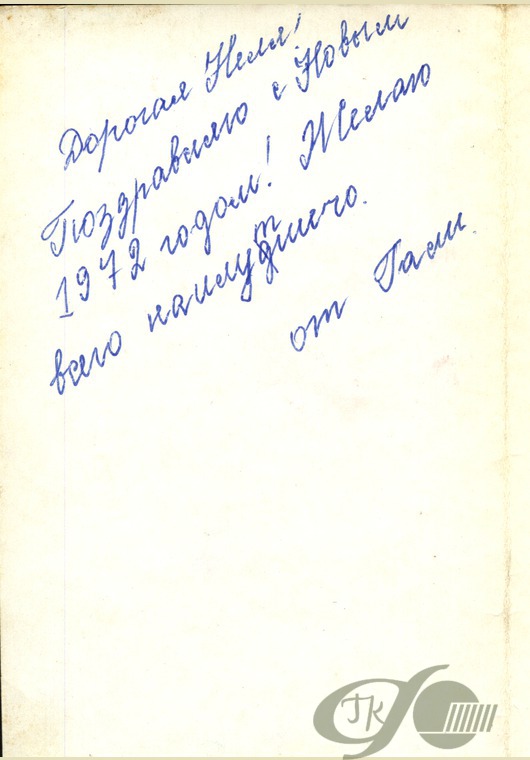 Дорогая Неля!
Поздравляю с Новым
1972 годом! Желаю
всего наилутшего.
от Гали.
ГК